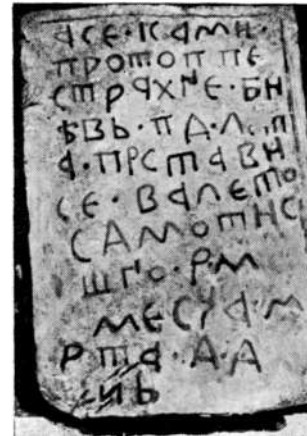 АСЕ·КАМН·
ПРОТОППЕ
СТРАХНЕ·БН
ѢВЬ·ПД·Л
А·ПРСТАВН
СЕ·ВАЛЕТО
САМОТНС
ШГО·РМ
МЕСЦА·М
РТА·Д·Д
НЬ